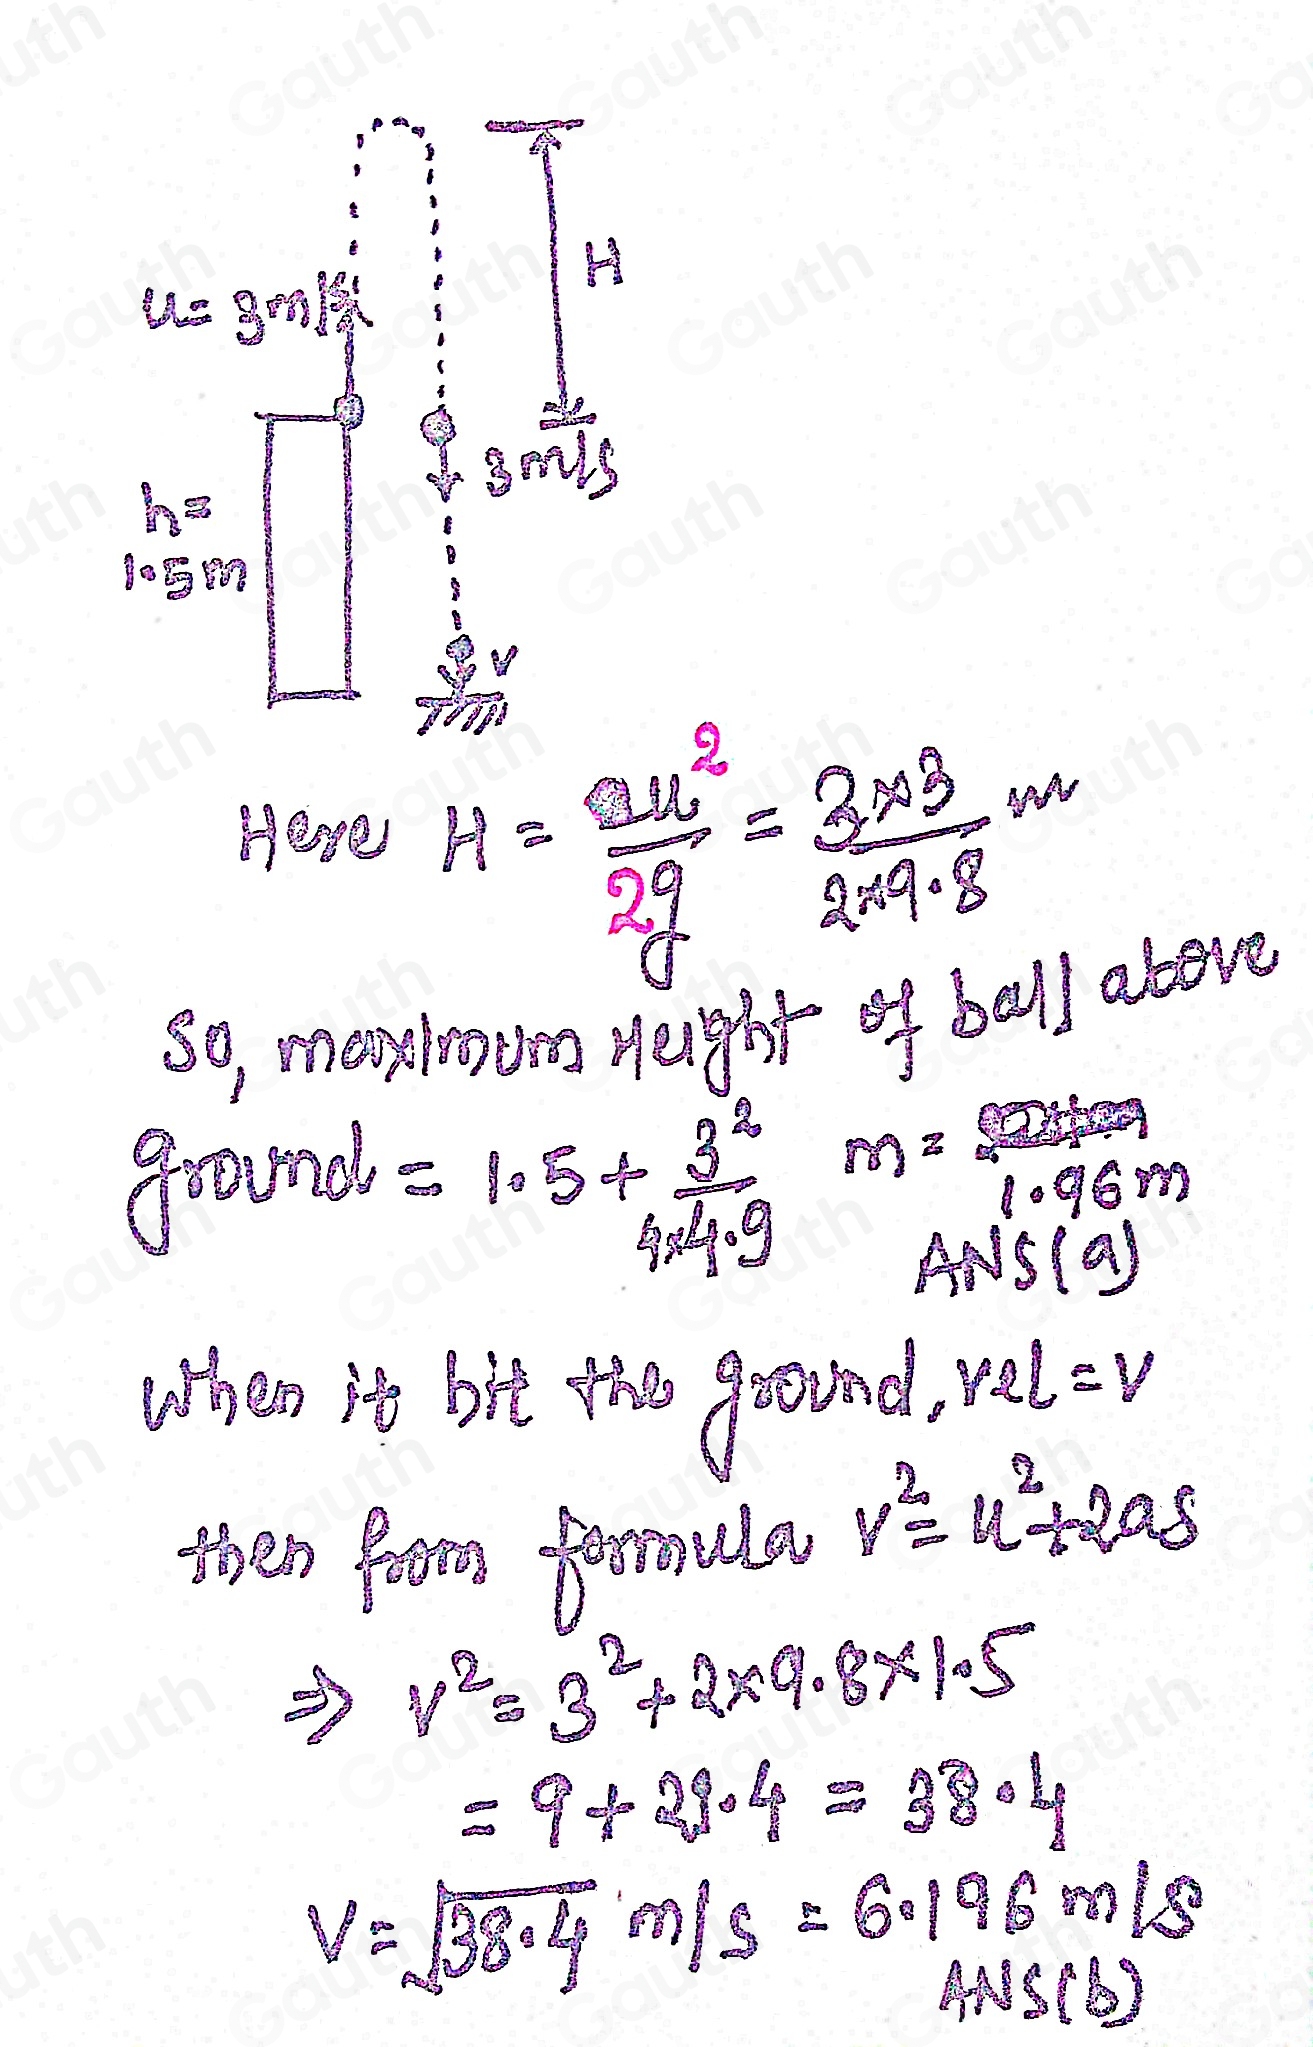 u= 3m/s
H
3m/s
h=
1.5m
v
Here H = u²/2g = 3×3/2×9.8 m
So, maximum Height of ball above
ground = 1.5 + 3²/4×4.9 m = 1.96m
ANS(a)
When it hit the ground, vel = v
then from formula v² = u²+2as
⇒ v² = 3² + 2×9.8×1.5
= 9 + 29.4 = 38.4
V = √38.4 m/s = 6.196 m/s
ANS(b)
Gauth